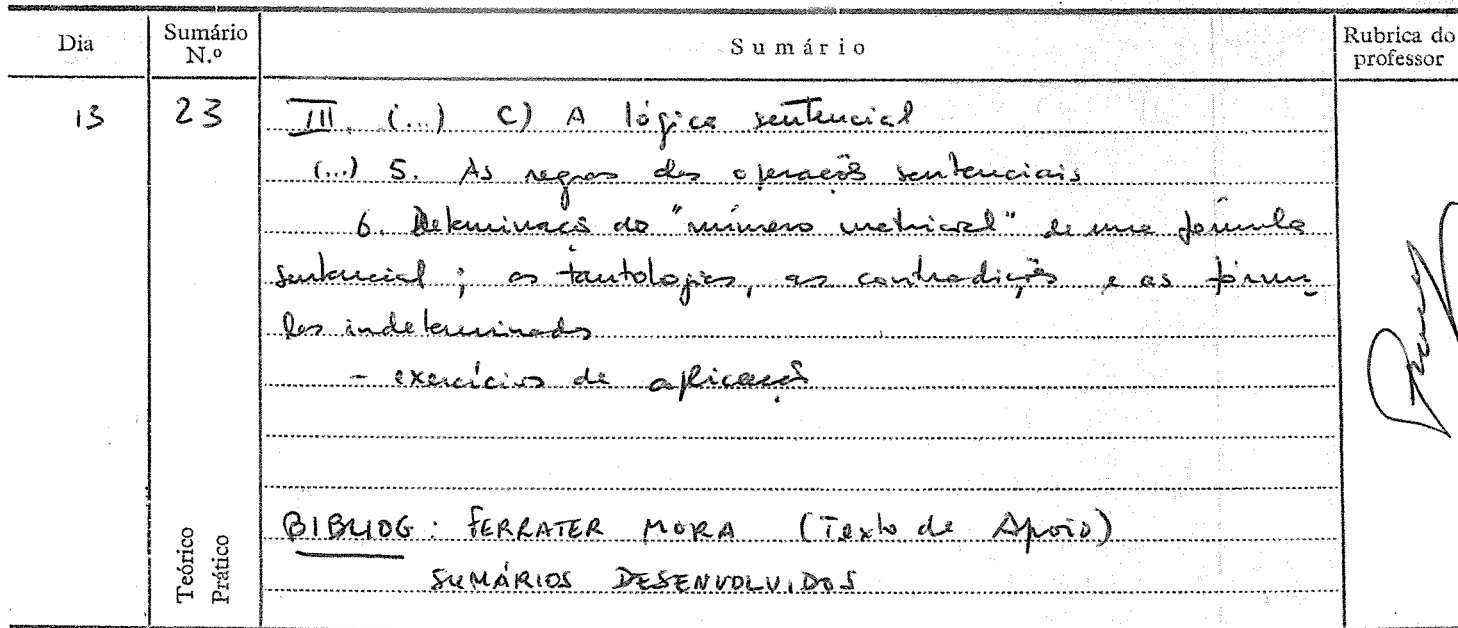 Dia
Sumário N.º
Sumário
Rubrica do professor
13
23
III. (...) C) A lógica sentencial
(...) 5. As regras das operações sentenciais
6. Determinação do "número matricial" de uma fórmula
sentencial; as tautologias, as contradições e as fórmu-
las indeterminadas
- exercícios de aplicação
BIBLIOG: FERRATER MORA (Texto de Apoio)
SUMÁRIOS DESENVOLVIDOS
Teórico
Prático